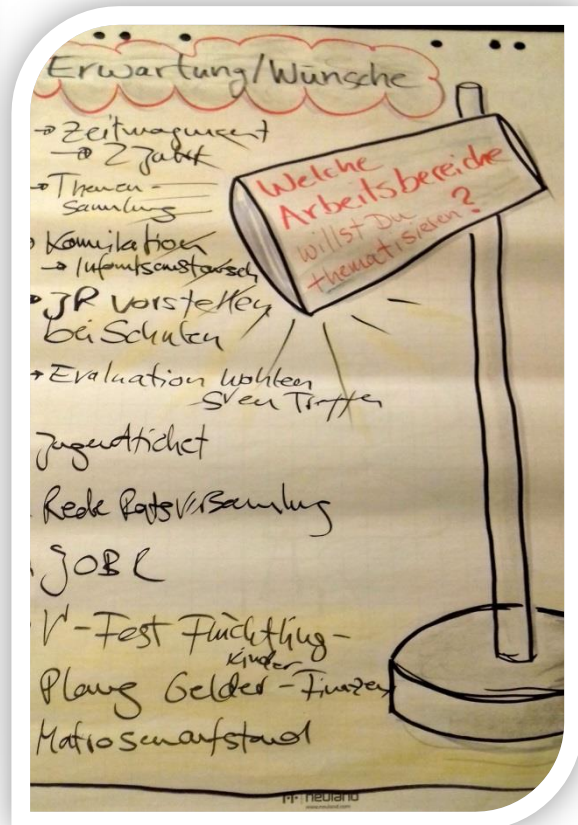 Erwartung/Wünsche
→ Zeitmagment
→ 2 Jahr
→ Themen-
Samlung
Komikation
→ Infomtsaustausch
JR vorstellen
bei Schulen
→ Evaluation Wahlen
Sven Treffen
Jugendticket
Rede RatsVersamlug
JOBL
V-Fest Flüchtling-
Kinder
Planug Gelder - Finazen
Matrosenaufstand
Welche
Arbeitsbereiche
willst Du
thematisieren?
neuland
www.neuland.com